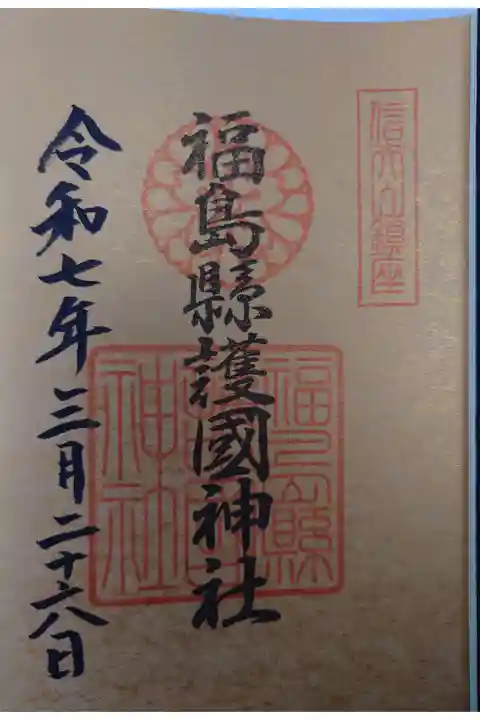 信夫山鎮座
福島縣護國神社
福島縣護國神社
令和七年三月二十六日